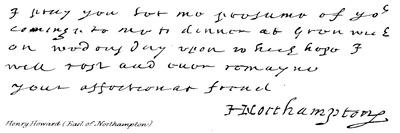 I pray you lot me prosume of yor
coming to me to dinner at Gronwich
on wodonsday upon which hope I
will rost and ever remayne
your affectionat friend
Northampton
Henry Howard (Earl of Northampton)